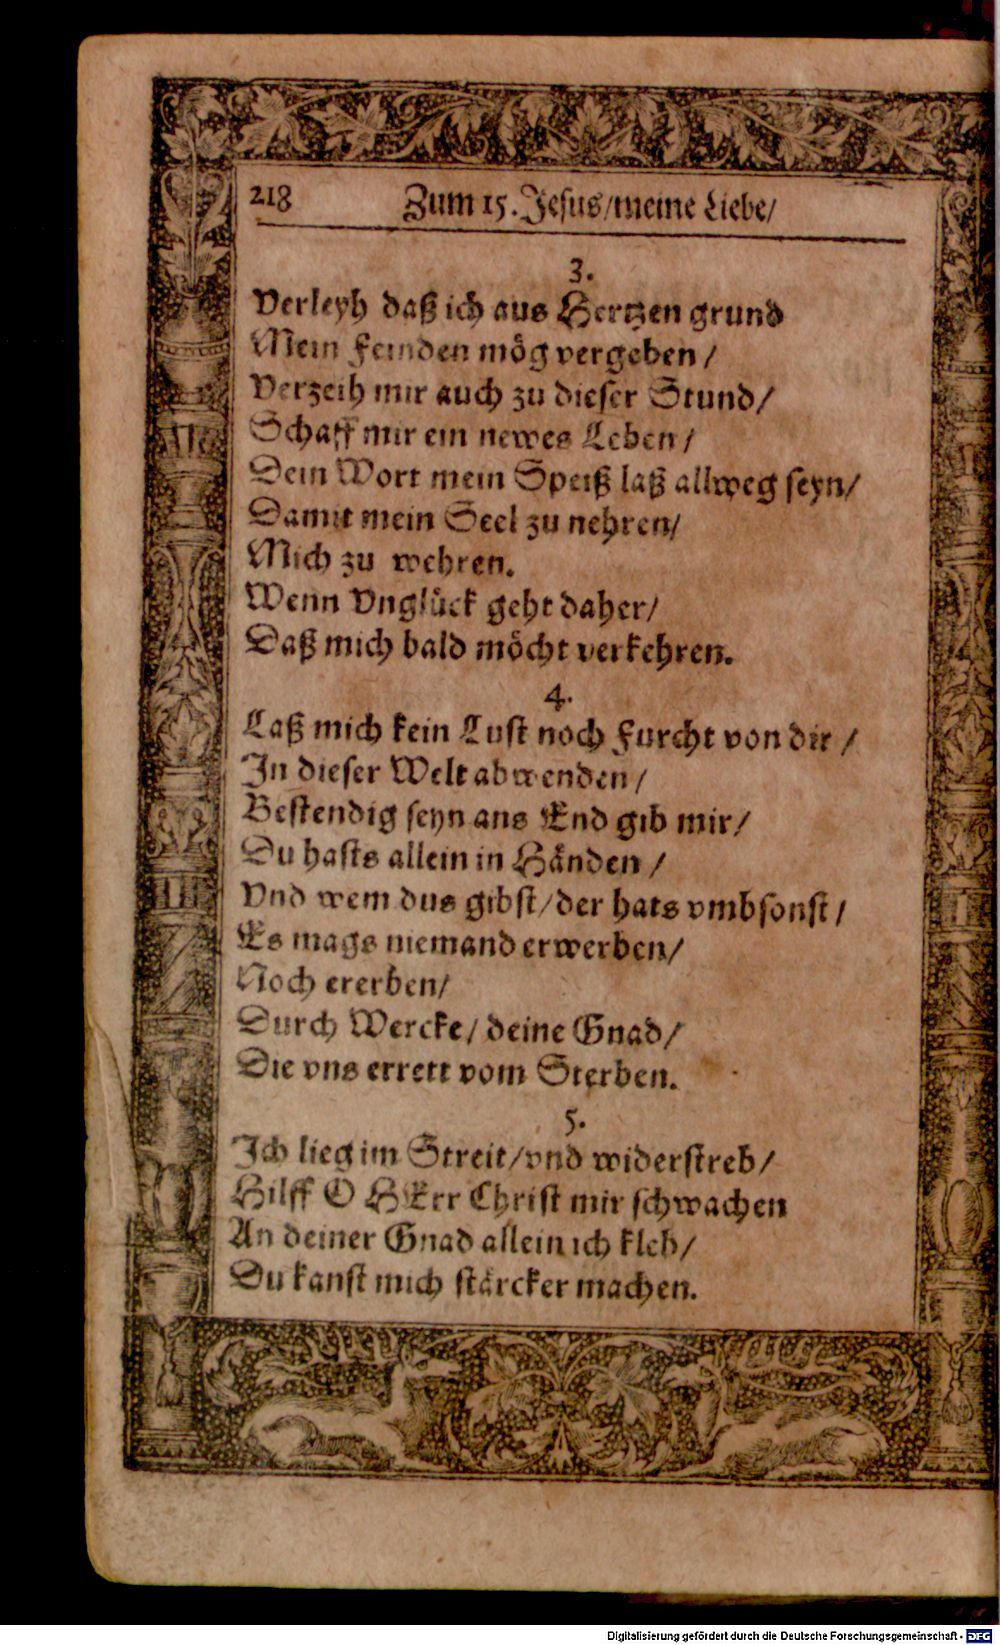 218 Zum 15. Jesus/meine Liebe/
3.
Verleyh daß ich aus Hertzen grund
Mein Feinden mög vergeben /
Verzeih mir auch zu dieser Stund/
Schaff mir ein newes Leben /
Dein Wort mein Speiß laß allweg seyn/
Damit mein Seel zu nehren/
Mich zu wehren.
Wenn Vnglück geht daher/
Daß mich bald möcht verkehren.
4.
Laß mich kein Lust noch Furcht von dir /
In dieser Welt abwenden /
Bestendig seyn ans End gib mir/
Du hasts allein in Händen /
Vnd wem dus gibst/der hats vmbsonst /
Es mags niemand erwerben/
Noch ererben/
Durch Wercke/ deine Gnad/
Die vns errett vom Sterben.
5.
Ich lieg im Streit/vnd widerstreb/
Hilff O HErr Christ mir schwachen
An deiner Gnad allein ich kleb/
Du kanst mich stärcker machen.
Digitalisierung gefördert durch die Deutsche Forschungsgemeinschaft - DFG